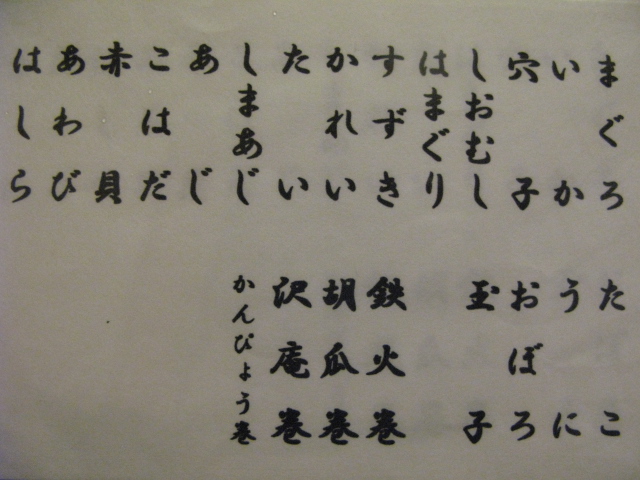 まぐろ
いか
穴子
しおむし
はまぐり
すずき
かれい
たい
しまあじ
あじ
こはだ
赤貝
あわび
はしら
たこ
うに
おぼろ
玉子
鉄火巻
胡瓜巻
沢庵巻
かんぴょう巻